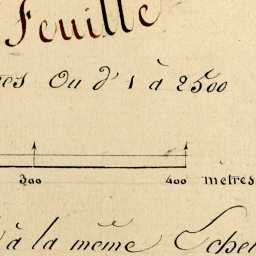 Feuille
Ou d' 1 à 2500
300 400 mètres
à la même Echel